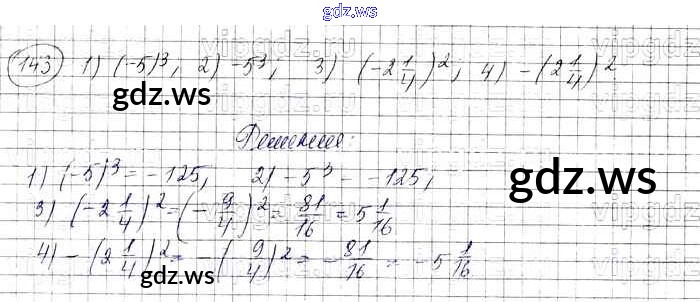 gdz.ws
143 1) (-5)³, 2) -5³; 3) (-2 1/4)²; 4) -(2 1/4)²
gdz.ws
Решения:
1) (-5)³ = -125, 2) -5³ - -125,
gdz.ws
3) (-2 1/4)² = (-9/4)² = 81/16 = 5 1/16
4) -(2 1/4)² = -(9/4)² = -81/16 = -5 1/16
gdz.ws